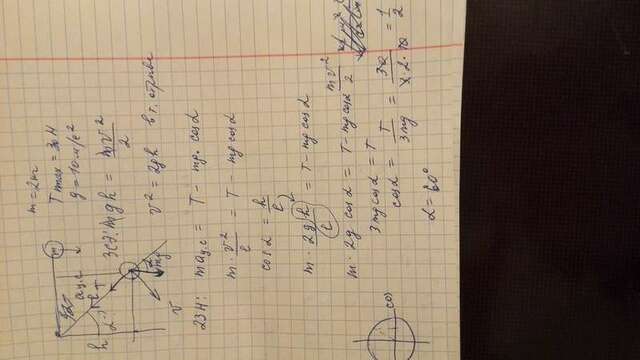 m = 2 кг
T max = 30 Н
g = 10 м/с²
ЗСЭ: mgh = mv²/2
v² = 2gh в т. отрыва
2ЗН: ma ц.с = T - mg · cos α
m · v²/l = T - mg cos α
cos α = h/l
m · 2gh/l = T - mg cos α
m · 2g cos α = T - mg cos α
mv²/2
3mg cos α = T
cos α = T/3mg = 30/3·2·10 = 1/2
α = 60°
a ц.с
T
h
α
l
m
mg
v
cos